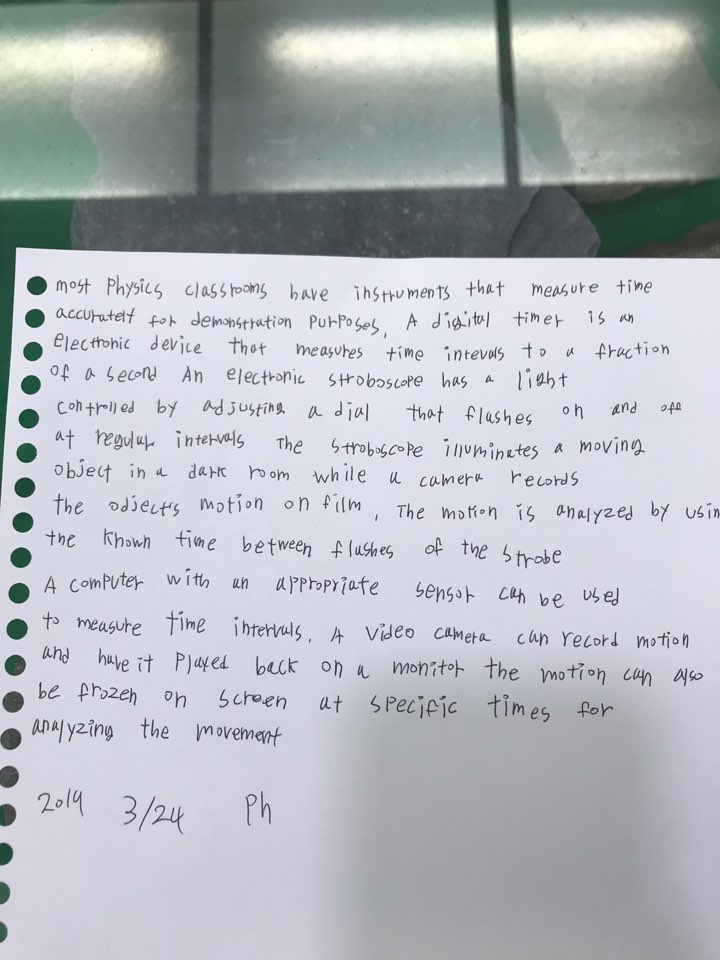 most Physics classrooms have instruments that measure time
accurately for demonstration purposes, A digital timer is an
Electronic device that measures time intevals to a fraction
of a second An electronic stroboscope has a light
controlled by adjusting a dial that flashes on and off
at regular intervals The stroboscope illuminates a moving
object in a dark room while a camera records
the odject's motion on film, The motion is analyzed by usin
the known time between flashes of the strobe
A computer with an appropriate sensor can be used
to measure time intervals. A video camera can record motion
and have it played back on a monitor the motion can also
be frozen on screen at specific times for
analyzing the movement
2019 3/24 Ph